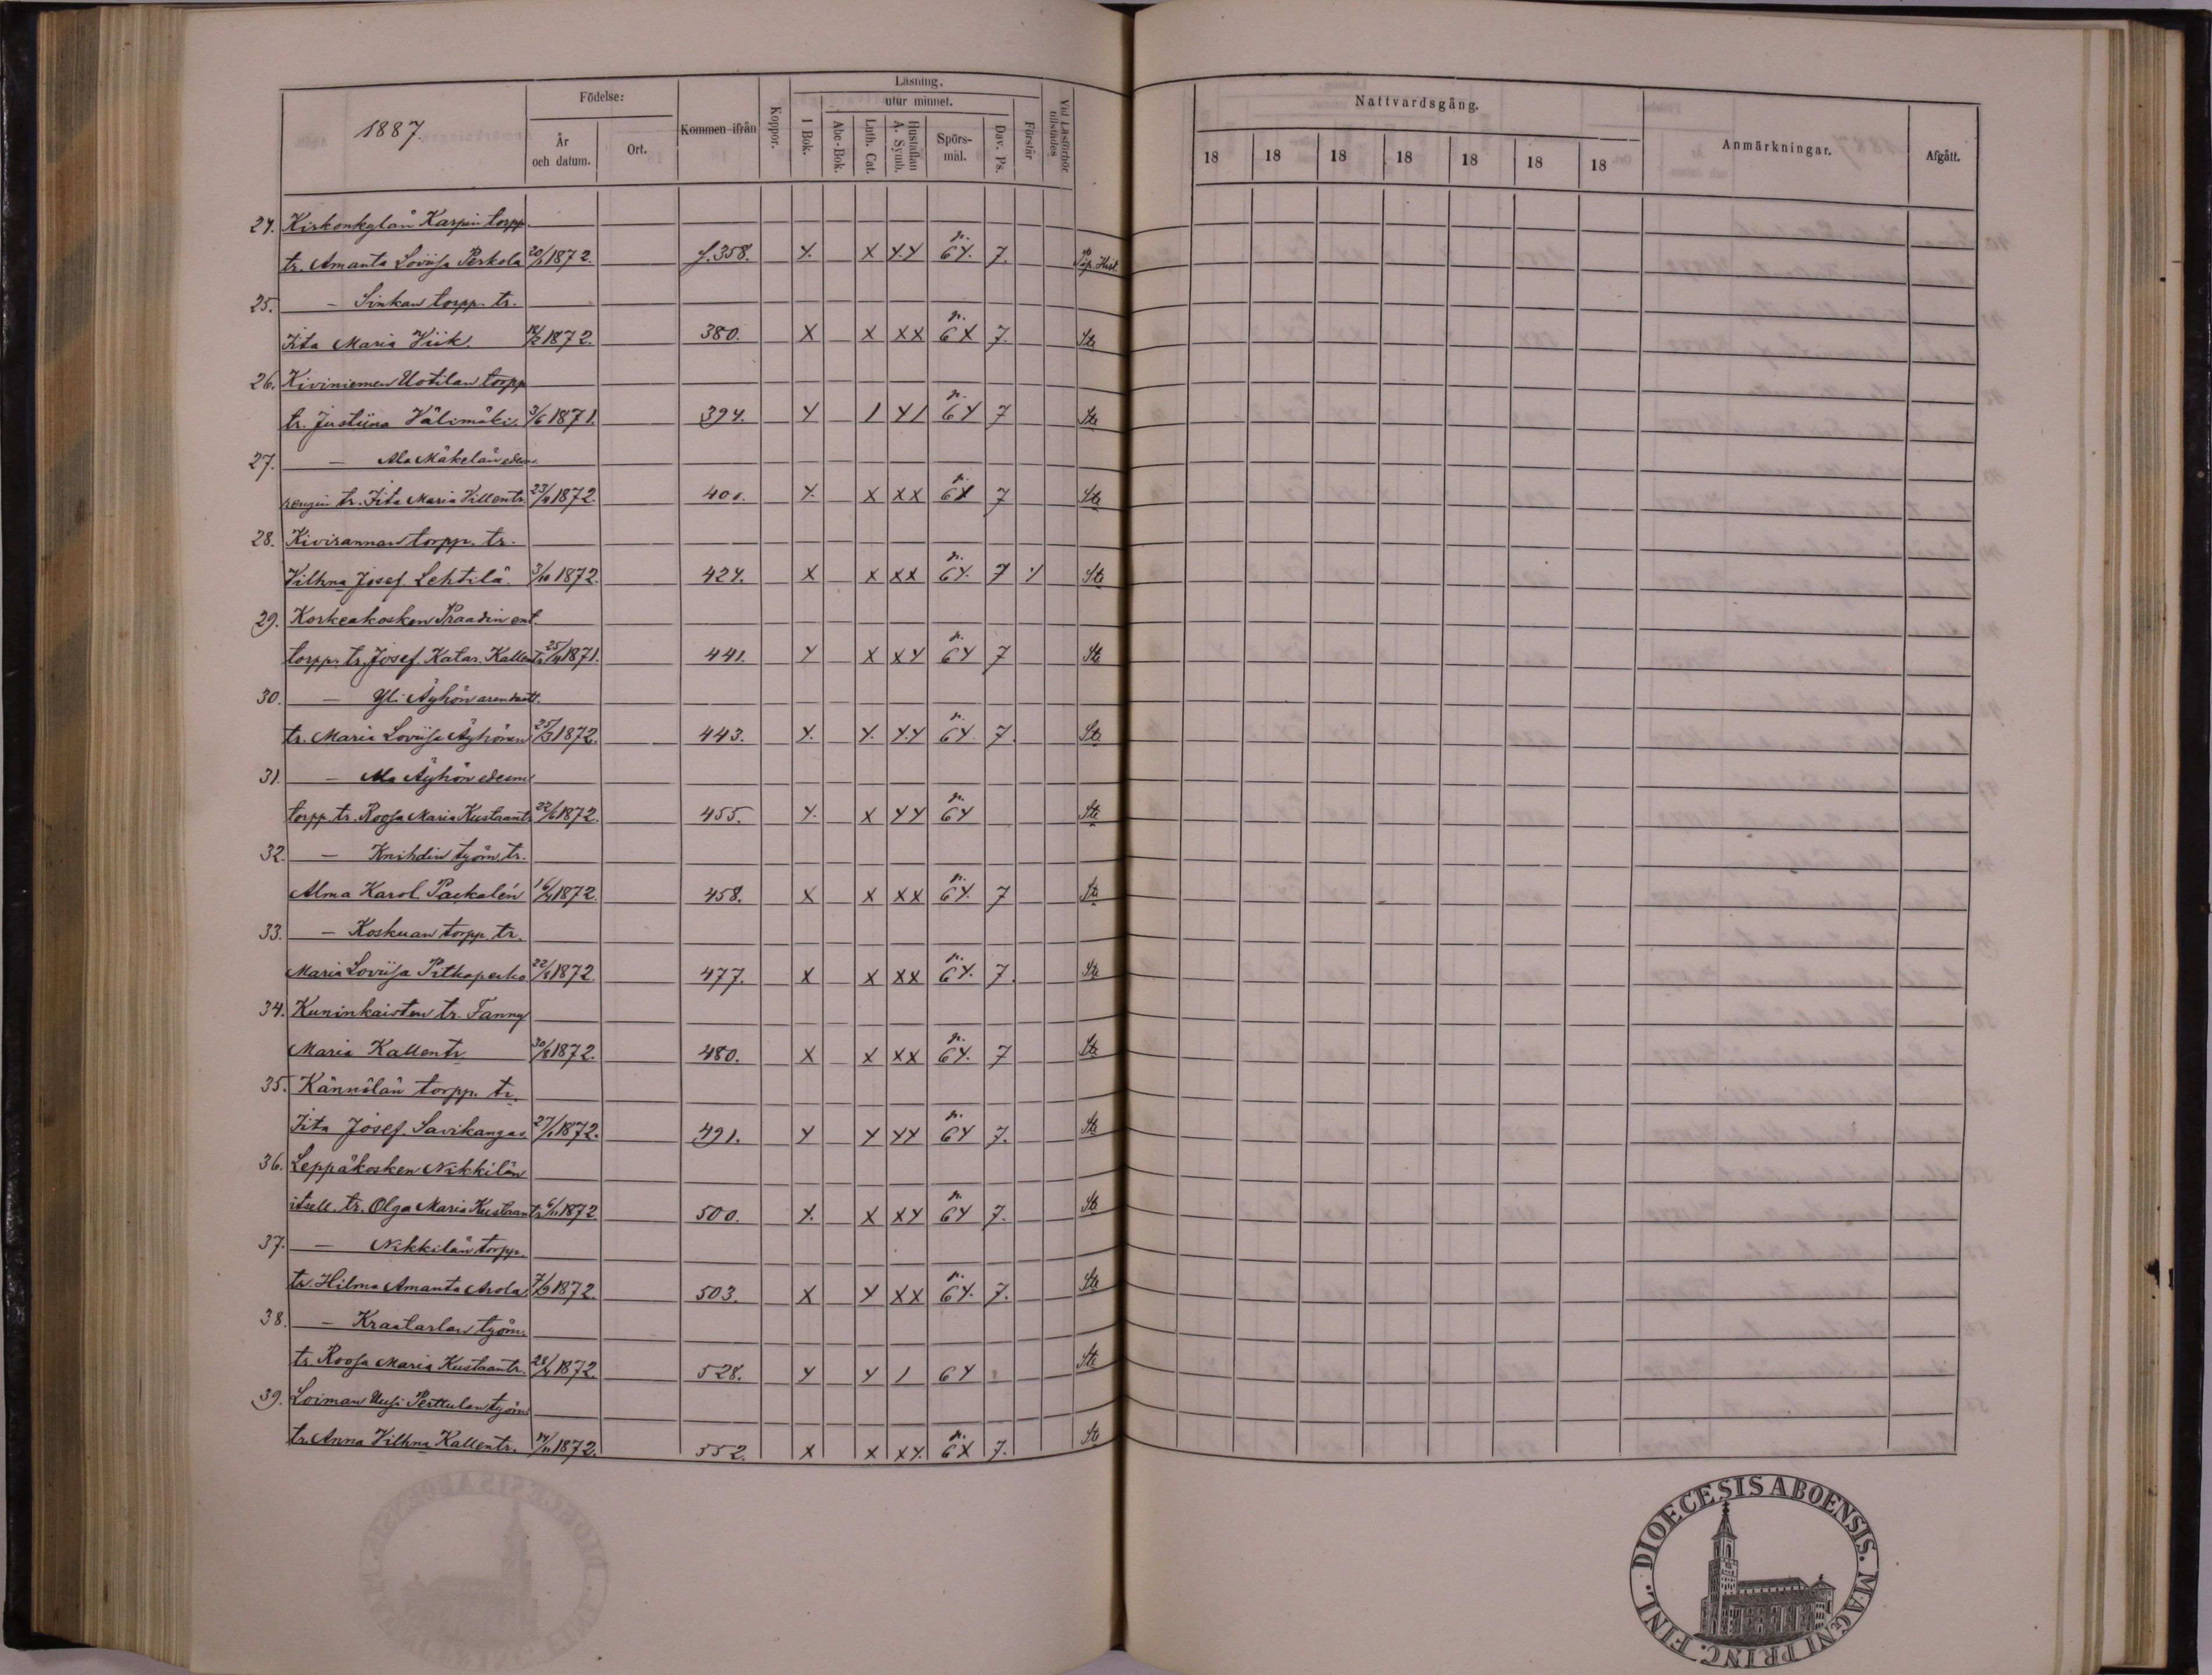 1887.
Födelse:
År
och datum.
Ort.
Kommen ifrån
Koppor.
Läsning.
utur minnet.
I Bok.
Abc-Bok.
Luth. Cat.
Hustaflan
A. Symb.
Spörs-
mål.
Dav. Ps.
Förstår
Vid Läsförhör
tillstädes
Nattvardsgång.
18 18 18 18 18 18 18
Anmärkningar.
Afgått.
24. Kirkonkylän Karpin torpp.
tr. Amanta Loviisa Perkola 1872. f. 358. Y. X Y.Y n. 6Y. 7.
25. – Sinkan torpp. tr.
Iita Maria Viik. 1872. 380. X X XX n. 6X 7. Ste
26. Kiviniemen Uotilan torpp
tr. Justiina Välimäki. 3/6 1871. 394. Y 1 Y1 n. 6Y 7 Ste
27. – Ala Mäkelän edesm.
rengin tr. Iita Maria Villentr. 1872. 400. Y. X XX n. 6X 7 Ste
28. Kivirannan torpp. tr.
Vilhna Josef. Lehtilä. 3/10 1872. 424. X X XX n. 6Y. 7 Y Ste
29. Korkeakosken Praadin ent.
torpp. tr. Josef. Katar. Kallentr. 1871. 441. Y X XY n. 6Y 7 Ste
30. – Yli Äyhön arendaatt.
tr. Maria Loviisa Äyhönen 25/3 1872. 443. Y. Y. Y.Y n. 6Y. 7. Ste
31. – Ala Äyhön edesm.
torpp. tr. Roosa Maria Kustaantr. 22/6 1872. 455. Y. X YY n. 6Y Ste
32. – Knihdin työm. tr.
Alma Karol. Packalén 16/4 1872. 458. X X XX n. 6Y. 7 Ste
33. – Koskuan torpp. tr.
Maria Loviisa Pitkaperko 22/8 1872. 477. X X XX n. 6Y. 7. Ste
34. Kuninkaisten tr. Fanny
Maria Kallentr. 30/8 1872. 480. X X XX n. 6Y. 7 Ste
35. Kännölän torpp. tr.
Iita Josef. Savikangas. 1872. 491. Y Y YY n. 6Y 7. Ste
36. Leppäkosken Nikkilän
itsell. tr. Olga Maria Kustaantr. 6/11 1872. 500. Y. X XY n. 6Y 7. Ste
37. – Nikkilän torpp.
tr. Hilma Amanta Arola. 7/9 1872. 503. X Y XX n. 6Y. 7. Ste
38. – Kraatarlan työm.
tr. Roosa Maria Kustaantr. 28/4 1872. 528. Y Y 1 6Y Ste
39. Loiman Uusi Perttulan työm.
tr. Anna Vilhna Kallentr. 1872. 552. X X XY. n. 6X 7. Ste
DIOECESIS ABOENSIS. MAGNI PRINC. FINL.